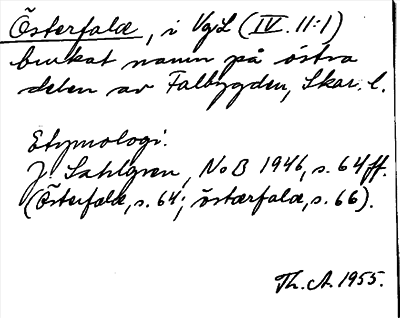 Österfalæ, i VgL (IV. 11:1)
brukat namn på östra
delen av Falbygden, Skar. l.
Etymologi:
J. Sahlgren, NoB 1946, s. 64 ff.
(Österfalæ, s. 64; östærfalæ, s. 66).
Th. A. 1955.